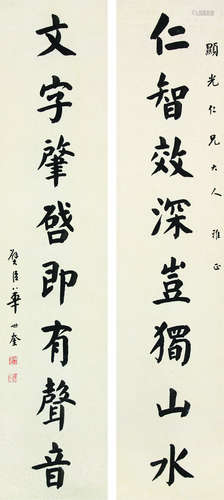 顯光仁兄大人雅正
仁智效深豈獨山水
文字肇啓即有聲音
璧臣華世奎